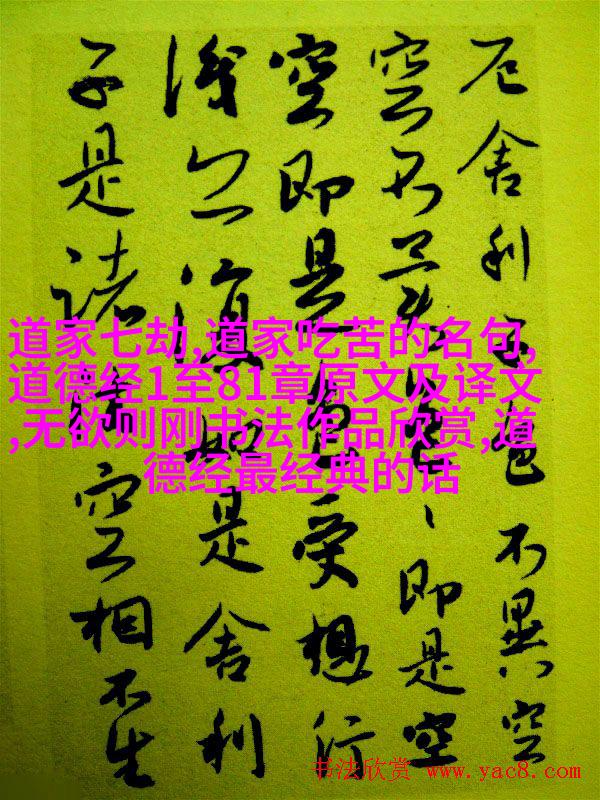 厄舍利子色不異空
空不異色、即是空
空即是色受想行
識亦復如是舍利
子是諸法空相不生
道家七劫,道家吃苦的名句,
道德经1至81章原文及译文
,无欲则刚书法作品欣赏,道
德经最经典的话
书法欣赏 www.yac8.com